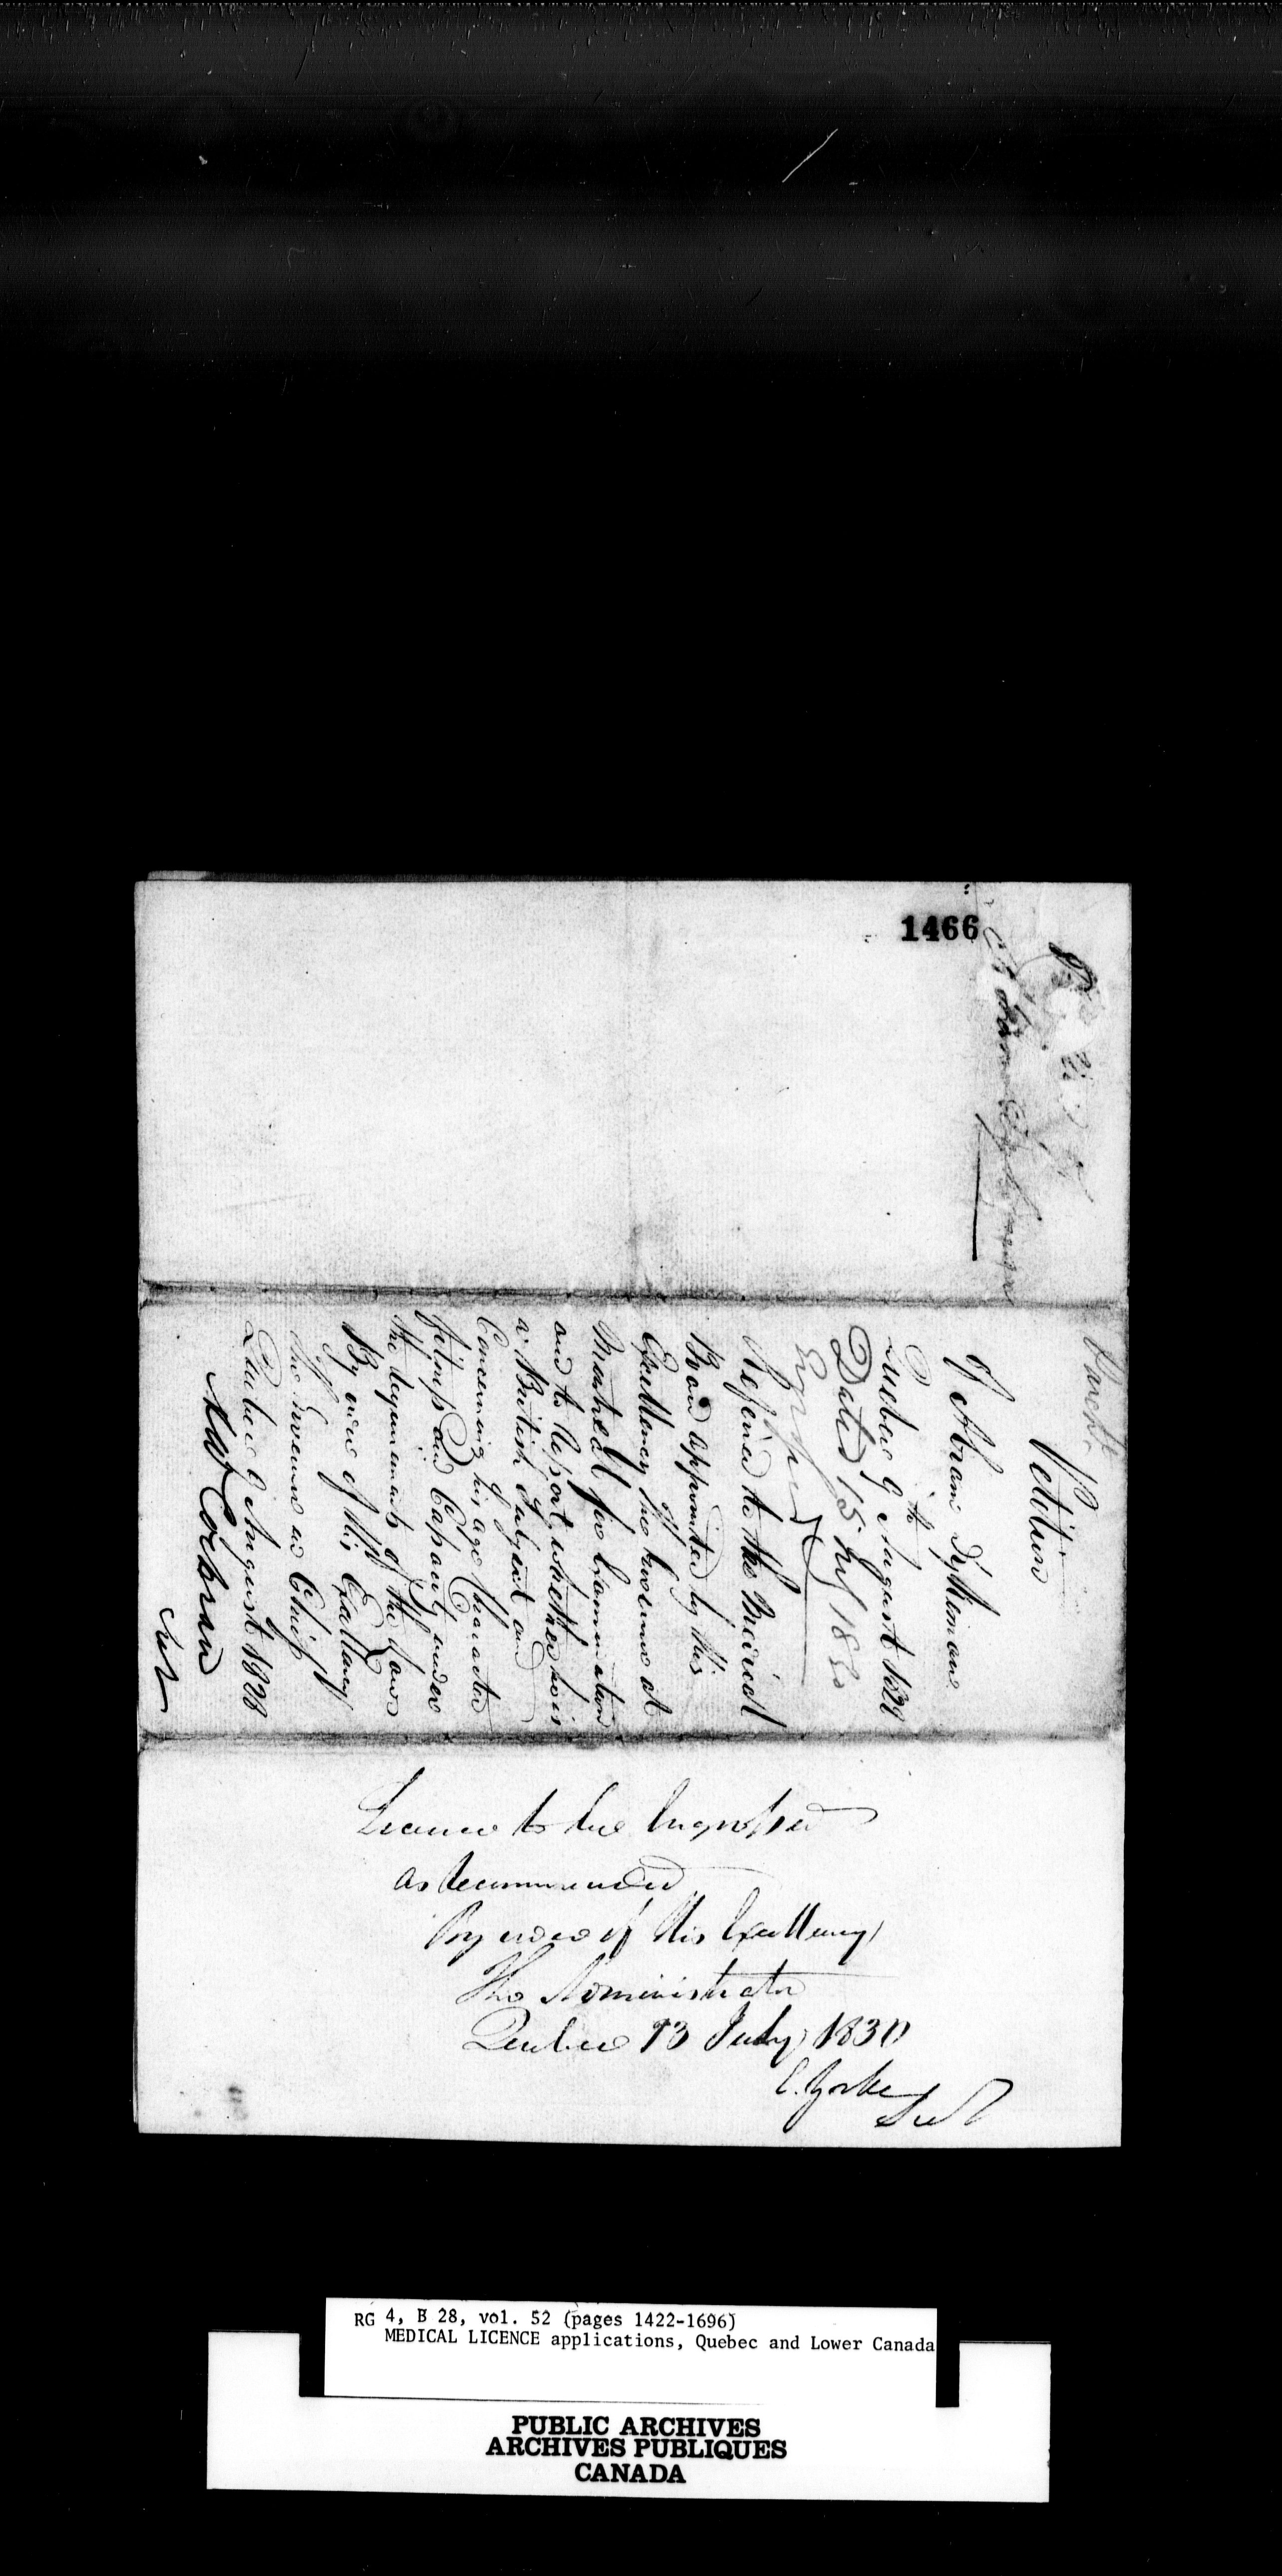 1466
Petition
of Abram
Quebec 9th August 1828
Dated 15 July 1830
Engrossed
Referred to the Medical
Board appointed by His
Excellency the Governor at
Montreal for Examination
and to Report whether he is
a British Subject and
Concerning his age Character
Fitness and Capacity under
the Requirements of the Law
By order of His Excellency
the Governor in Chief
Quebec 9 August 1828
A W Cochran
Sec
Licence to be Engrossed
as Recommended
By order of His Excellency
The Administrator
Quebec 13 July 1830
C. Yorke
Sec
RG 4, B 28, vol. 52 (pages 1422-1696)
MEDICAL LICENCE applications, Quebec and Lower Canada
PUBLIC ARCHIVES
ARCHIVES PUBLIQUES
CANADA